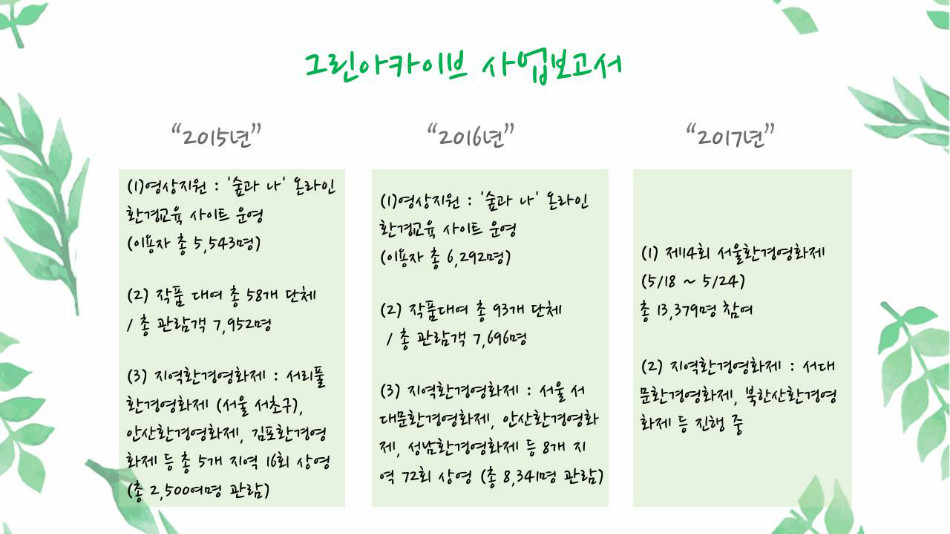 그린아카이브 사업보고서
“2015년”
(1)영상지원 : '숲과 나' 온라인
환경교육 사이트 운영
(이용자 총 5,543명)
(2) 작품 대여 총 58개 단체
/ 총 관람객 7,952명
(3) 지역환경영화제 : 서리풀
환경영화제 (서울 서초구),
안산환경영화제, 김포환경영
화제 등 총 5개 지역 16회 상영
(총 2,500여명 관람)
“2016년”
(1)영상지원 : '숲과 나' 온라인
환경교육 사이트 운영
(이용자 총 6,292명)
(2) 작품대여 총 93개 단체
/ 총 관람객 7,696명
(3) 지역환경영화제 : 서울 서
대문환경영화제, 안산환경영화
제, 성남환경영화제 등 8개 지
역 72회 상영 (총 8,341명 관람)
“2017년”
(1) 제14회 서울환경영화제
(5/18 ~ 5/24)
총 13,379명 참여
(2) 지역환경영화제 : 서대
문환경영화제, 북한산환경영
화제 등 진행 중